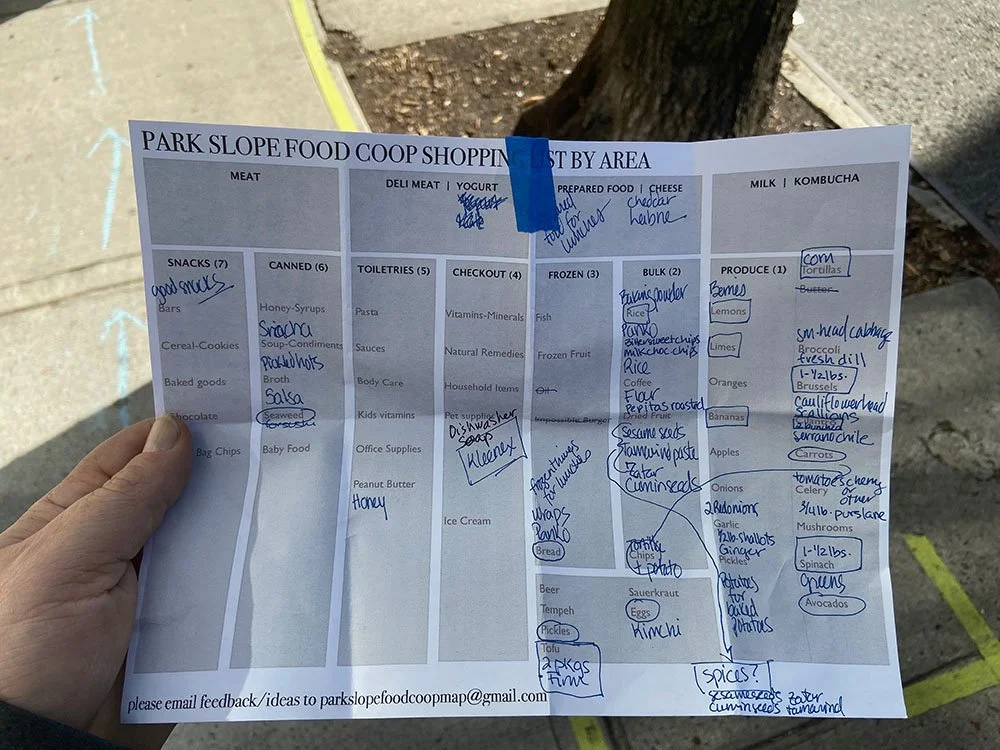 PARK SLOPE FOOD COOP SHOPPING LIST BY AREA
MEAT
DELI MEAT | YOGURT
PREPARED FOOD | CHEESE
food for
lunches
cheddar
lebne
MILK | KOMBUCHA
SNACKS (7)
good snacks
Bars
Cereal-Cookies
Baked goods
Chocolate
Bag Chips
CANNED (6)
Honey-Syrups
Sriracha
Soup-Condiments
pickled hots
Broth
Salsa
Seaweed
Baby Food
TOILETRIES (5)
Pasta
Sauces
Body Care
Kids vitamins
Office Supplies
Peanut Butter
Honey
CHECKOUT (4)
Vitamins-Minerals
Natural Remedies
Household Items
Pet supplies
Dishwasher
soap
Kleenex
Ice Cream
FROZEN (3)
Fish
Frozen Fruit
Oil
Impossible Burger
frozen things
for lunches
wraps
Panko
Bread
BULK (2)
Baking powder
Rice
Panko
Bittersweet chips
milk choc chips
Rice
Coffee
Flour
pepitas roasted
Dried Fruit
Sesame seeds
Tamarind paste
Zatar
Cumin seeds
tortilla
Chips
+ potato
Beer
Tempeh
Pickles
Tofu
2 pkgs
Firm
Sauerkraut
Eggs
Kimchi
PRODUCE (1)
Berries
Lemons
Limes
Oranges
Bananas
Apples
Onions
2 Red onions
Garlic
1/2 lb. shallots
Ginger
Pickles
Potatoes
for
baked
potatoes
corn
Tortillas
Butter
sm. head cabbage
Broccoli
fresh dill
1-1/2 lbs.
Brussels
Cauliflower head
scallions
2 bunches
serrano chile
Carrots
tomatoes cherry
or
other
Celery
3/4 lb. purslane
Mushrooms
1-1/2 lbs.
Spinach
Greens
Avocados
spices?
sesame seeds zatar
cumin seeds tamarind
please email feedback/ideas to parkslopefoodcoopmap@gmail.com